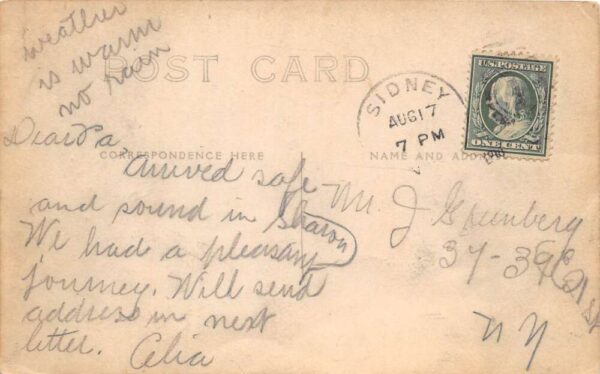 weather
is warm
no rain
POST CARD
SIDNEY
AUG 17
7 PM
U.S. POSTAGE
ONE CENT
CORRESPONDENCE HERE
NAME AND ADD
Dear Pa
arrived safe
and sound in Sharon
We had a pleasant
journey. Will send
address in next
letter. Celia
Mr. J Greenberg
37-39 E 21 st
N Y